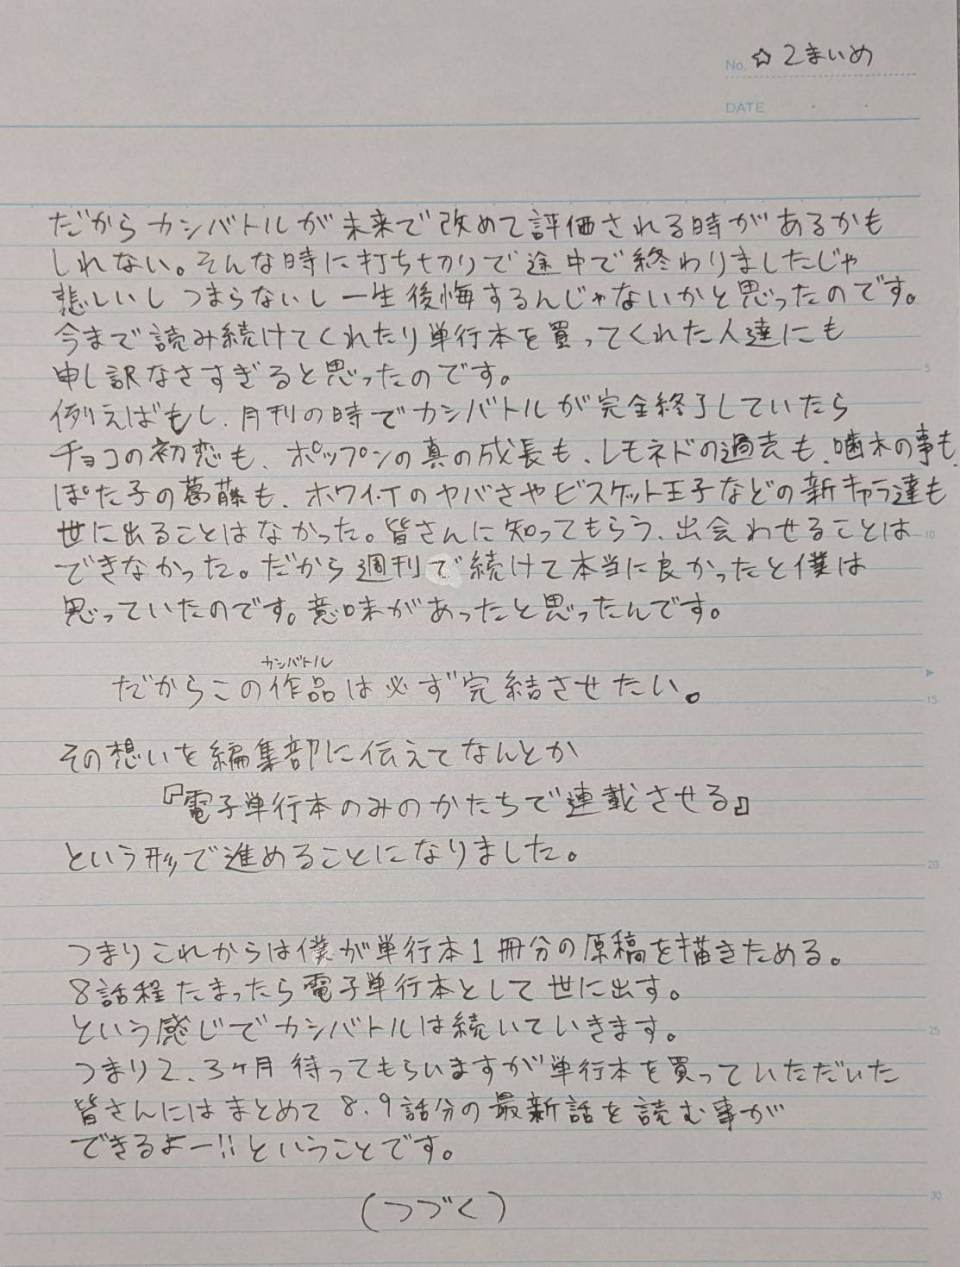 No. ☆2まいめ
DATE ・ ・
だからカシバトルが未来で改めて評価される時があるかも
しれない。そんな時に打ち切りで途中で終わりましたじゃ
悲しいし つまらないし 一生後悔するんじゃないかと思ったのです。
今まで読み続けてくれたり単行本を買ってくれた人達にも
申し訳なさすぎると思ったのです。
例えばもし、月刊の時でカシバトルが完全終了していたら
チョコの初恋も、ポップンの真の成長も、レモネドの過去も、噛木の事も、
ぽた子の葛藤も、ホワイトのヤバさやビスケット王子などの新キャラ達も
世に出ることはなかった。皆さんに知ってもらう、出会わせることは
5
できなかった。だから週刊で続けて本当に良かったと僕は
10
思っていたのです。意味があったと思ったんです。
カシバトル
だからこの作品は必ず完結させたい。
15
その想いを編集部に伝えてなんとか
『電子単行本のみのかたちで連載させる』
という形で進めることになりました。
20
つまりこれからは僕が単行本1冊分の原稿を描きためる。
8話程たまったら電子単行本として世に出す。
という感じでカシバトルは続いていきます。
25
つまり2、3ヶ月待ってもらいますが単行本を買っていただいた
皆さんにはまとめて8、9話分の最新話を読む事が
できるよー!!ということです。
30
(つづく)